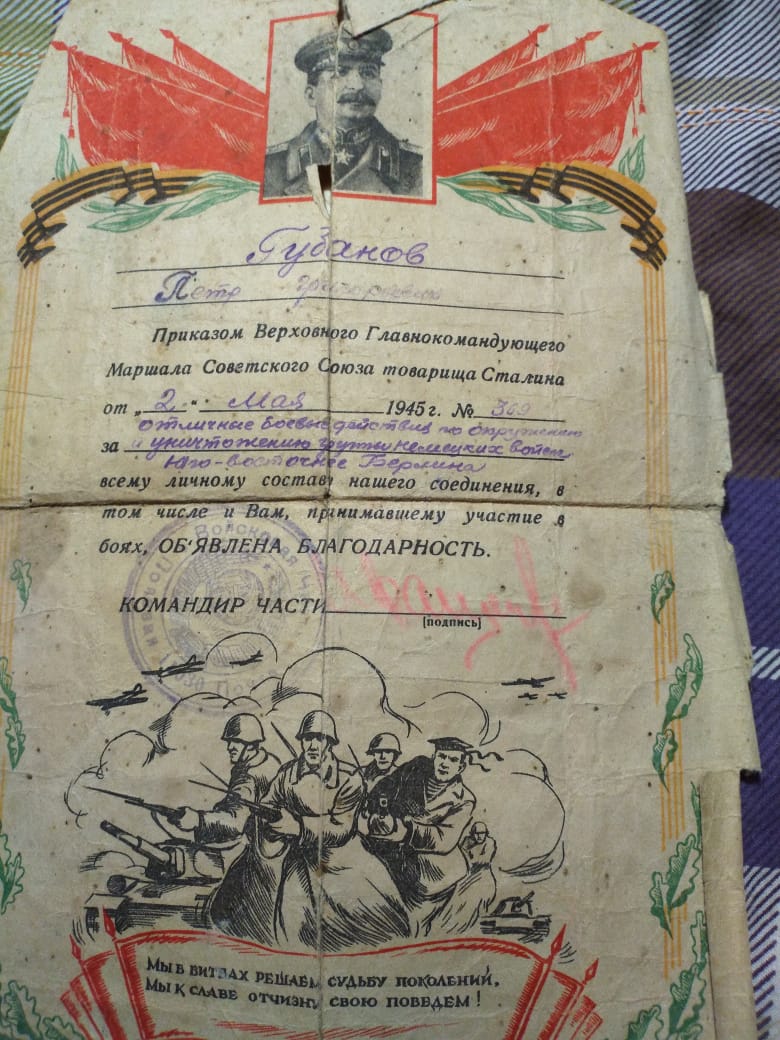 Губанов
Петр Григорьевич
Приказом Верховного Главнокомандующего
Маршала Советского Союза товарища Сталина
от „2“ Мая 1945 г. № 369
отличные боевые действия по окружению
за и уничтожению группы немецких войск
Юго-восточнее Берлина
всему личному составу нашего соединения, в
том числе и Вам, принимавшему участие в
боях, ОБ‘ЯВЛЕНА БЛАГОДАРНОСТЬ.
КОМАНДИР ЧАСТИ
[подпись]
Войсковая
МЫ В БИТВАХ РЕШАЕМ СУДЬБУ ПОКОЛЕНИЙ,
МЫ К СЛАВЕ ОТЧИЗНУ СВОЮ ПОВЕДЕМ!